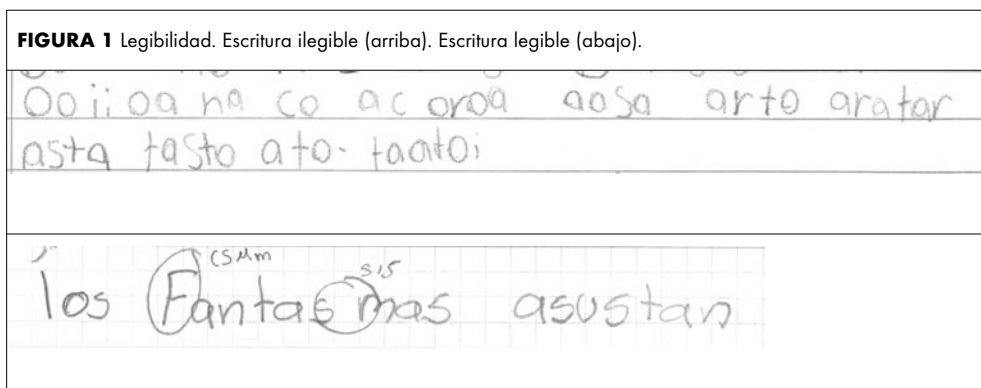 FIGURA 1 Legibilidad. Escritura ilegible (arriba). Escritura legible (abajo).
Ooiioa na co ac oroa aosa arto aratar
asta tasto ato. taatoi
csmm
sis
los Fantasmas asustan